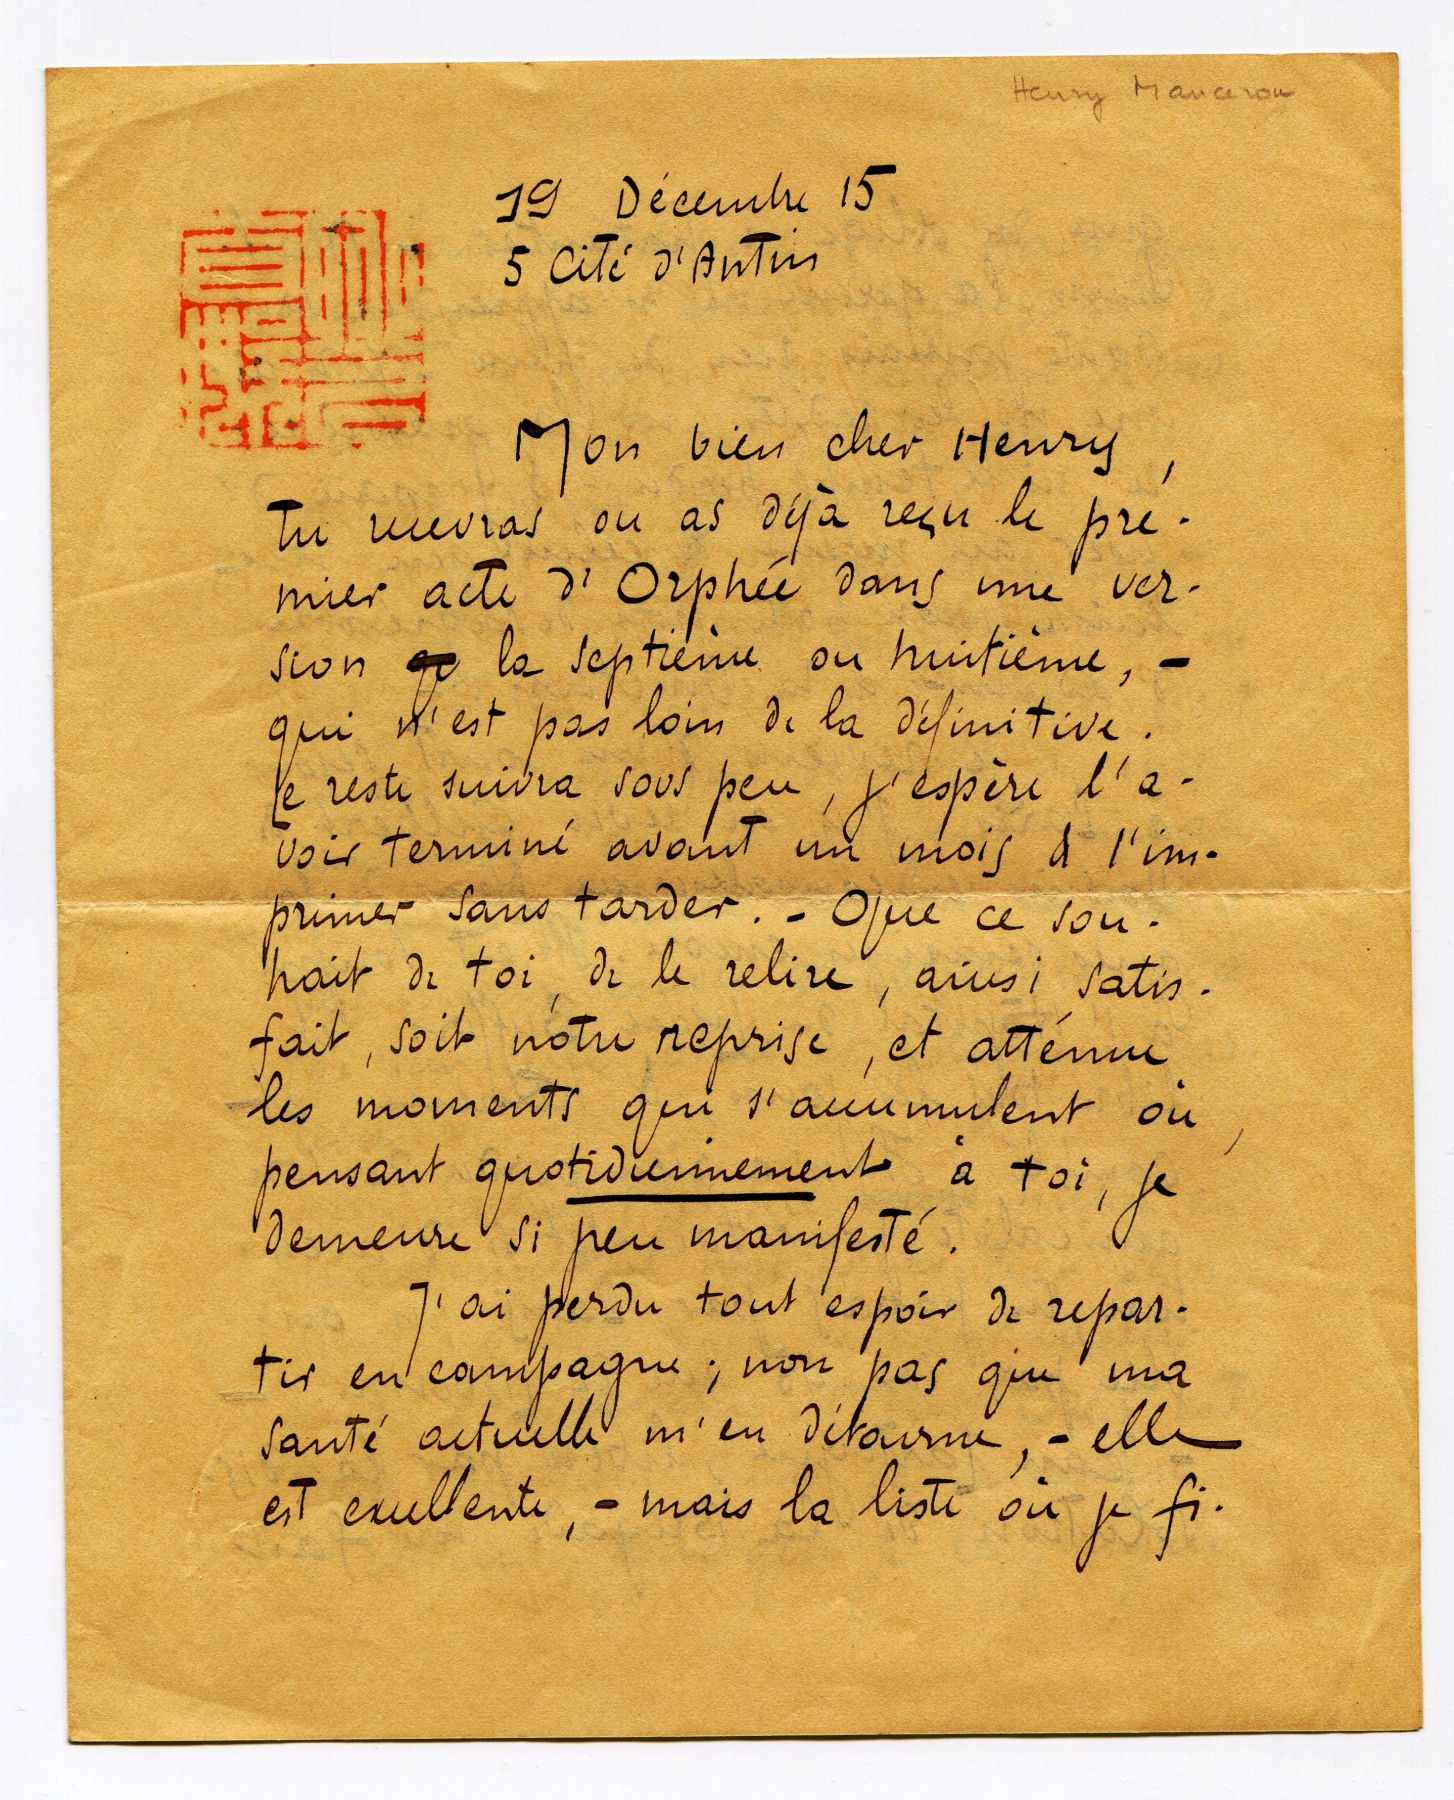 Henry Manceron
19 Décembre 15
5 Cité d'Antin
Mon bien cher Henry,
tu recevras ou as déjà reçu le pre-
mier acte d'Orphée dans une ver-
sion la septième ou huitième, -
qui n'est pas loin de la définitive.
Le reste suivra sous peu, j'espère l'a-
voir terminé avant un mois & l'im-
primer sans tarder. - Que ce sou-
hait de toi, de le relire, ainsi satis-
fait, soit notre reprise, et atténue
les moments qui s'accumulent où,
pensant quotidiennement à toi, je
demeure si peu manifesté.
J'ai perdu tout espoir de repar-
tir en campagne; non pas que ma
santé actuelle m'en détourne, - elle
est excellente, - mais la liste où je fi-